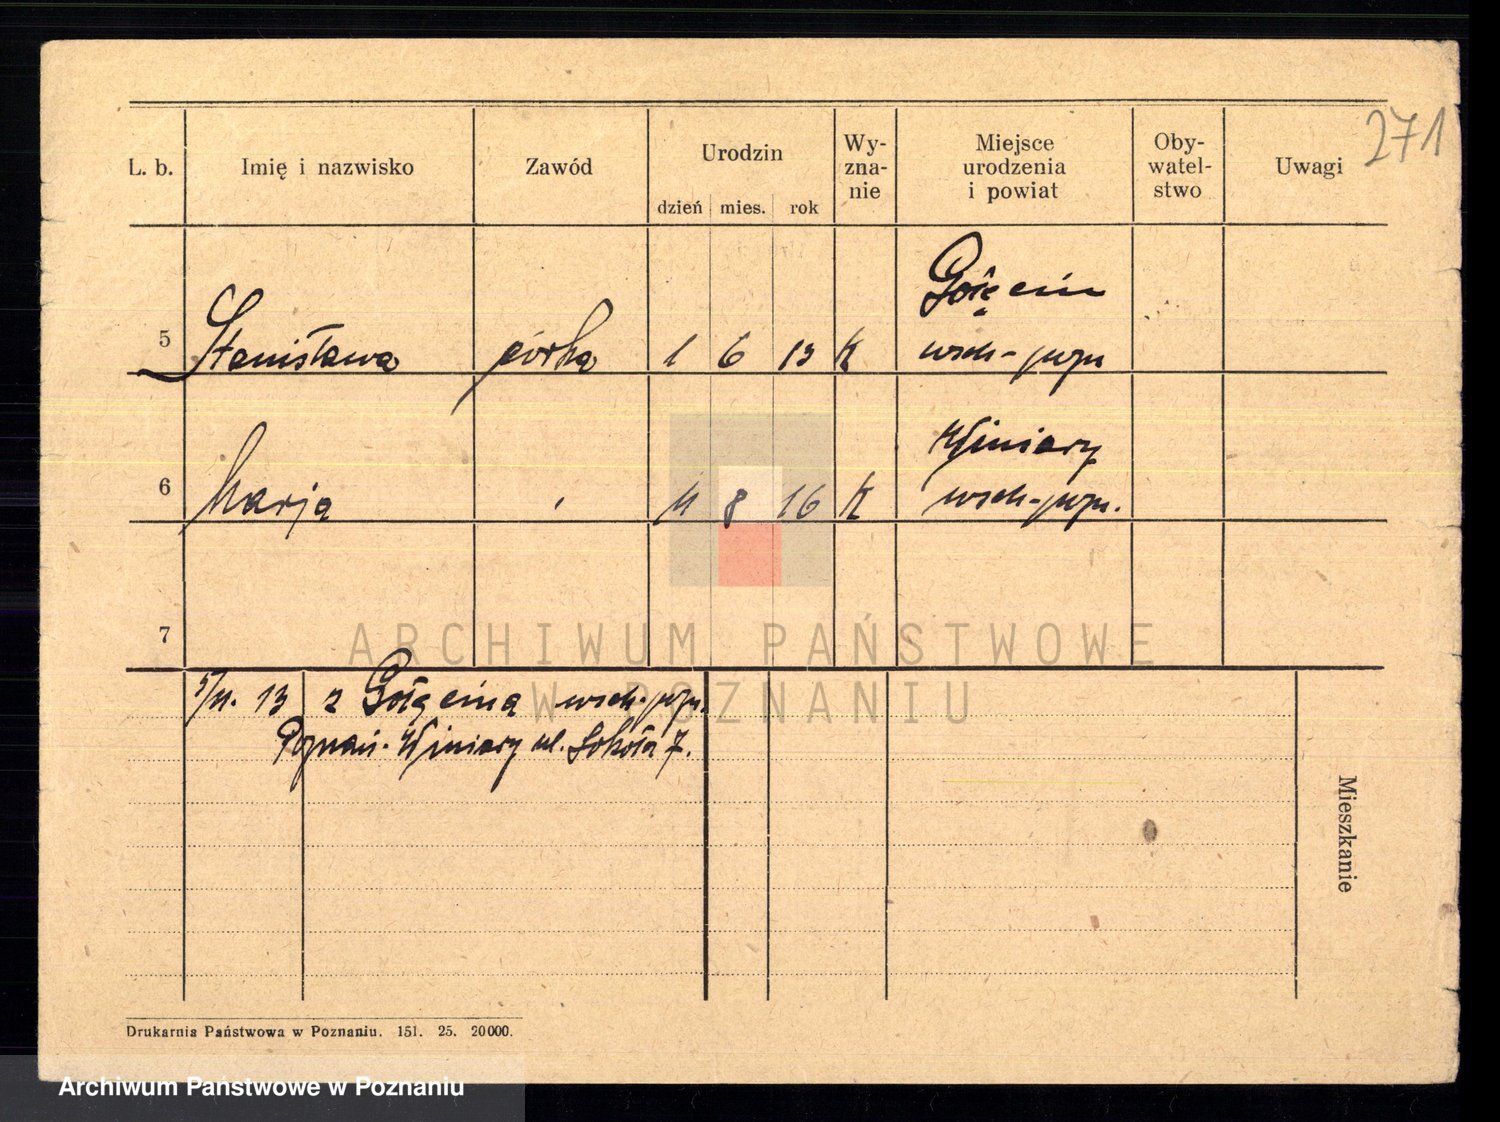 271
L. b. Imię i nazwisko Zawód Urodzin dzień mies. rok Wy-zna-nie Miejsce urodzenia i powiat Oby-watel-stwo Uwagi
Gołęcin
5 Stanisława córka 1 6 13 K wsch-pozn
Winiary
6 Marja 11 8 16 K wsch-pozn.
7
ARCHIWUM PAŃSTWOWE
W POZNANIU
5/11. 13 z Gołęcina wsch-pozn.
Poznań-Winiary ul. Sokoła 7.
Mieszkanie
Drukarnia Państwowa w Poznaniu. 151. 25. 20000.
Archiwum Państwowe w Poznaniu